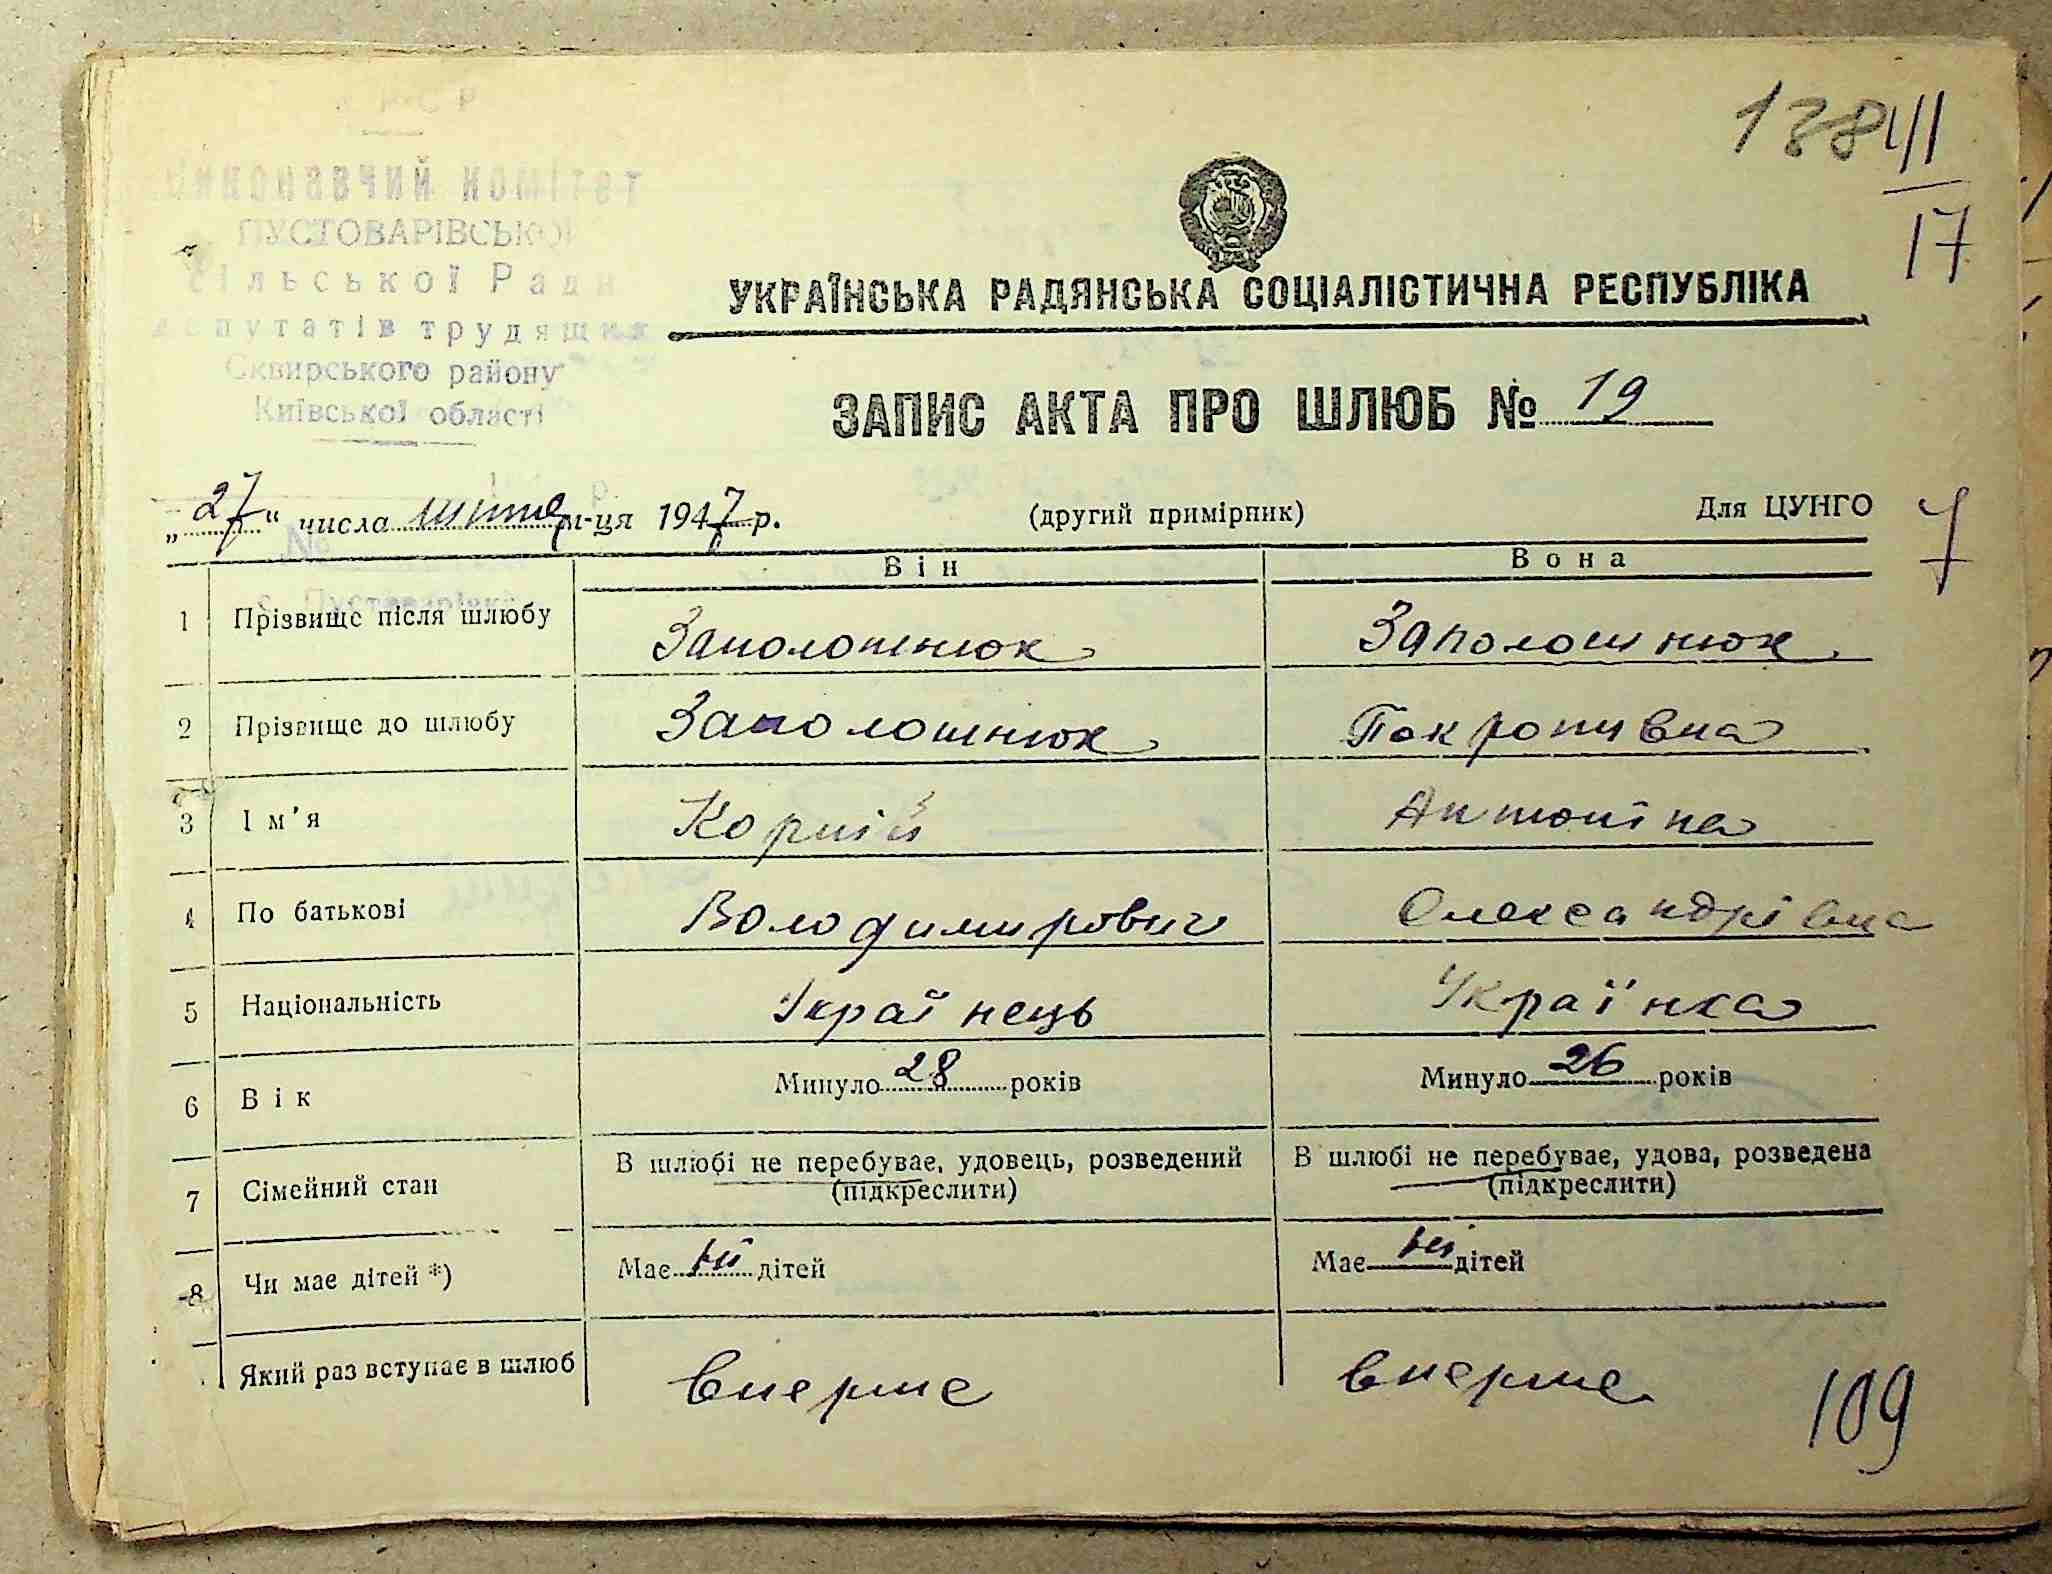 Виконавчий комітет
ПУСТОВАРІВСЬКОЇ
Сільської Ради
депутатів трудящих
Сквирського району
Київської області
138
VII
17
УКРАЇНСЬКА РАДЯНСЬКА СОЦІАЛІСТИЧНА РЕСПУБЛІКА
ЗАПИС АКТА ПРО ШЛЮБ № 19
„27“ числа липня м-ця 1947 р. (другий примірник) Для ЦУНГО
№
с. Пустоварівка
Він Вона
1 Прізвище після шлюбу Заполошнюк Заполошнюк
2 Прізвище до шлюбу Заполошнюк Покропивна
3 Ім'я Корній Антоніна
4 По батькові Володимирович Олександрівна
5 Національність Українець Українка
6 Вік Минуло 28 років Минуло 26 років
7 Сімейний стан В шлюбі не перебуває, удовець, розведений (підкреслити) В шлюбі не перебуває, удова, розведена (підкреслити)
8 Чи має дітей *) Має ні дітей Має ні дітей
Який раз вступає в шлюб вперше вперше
109